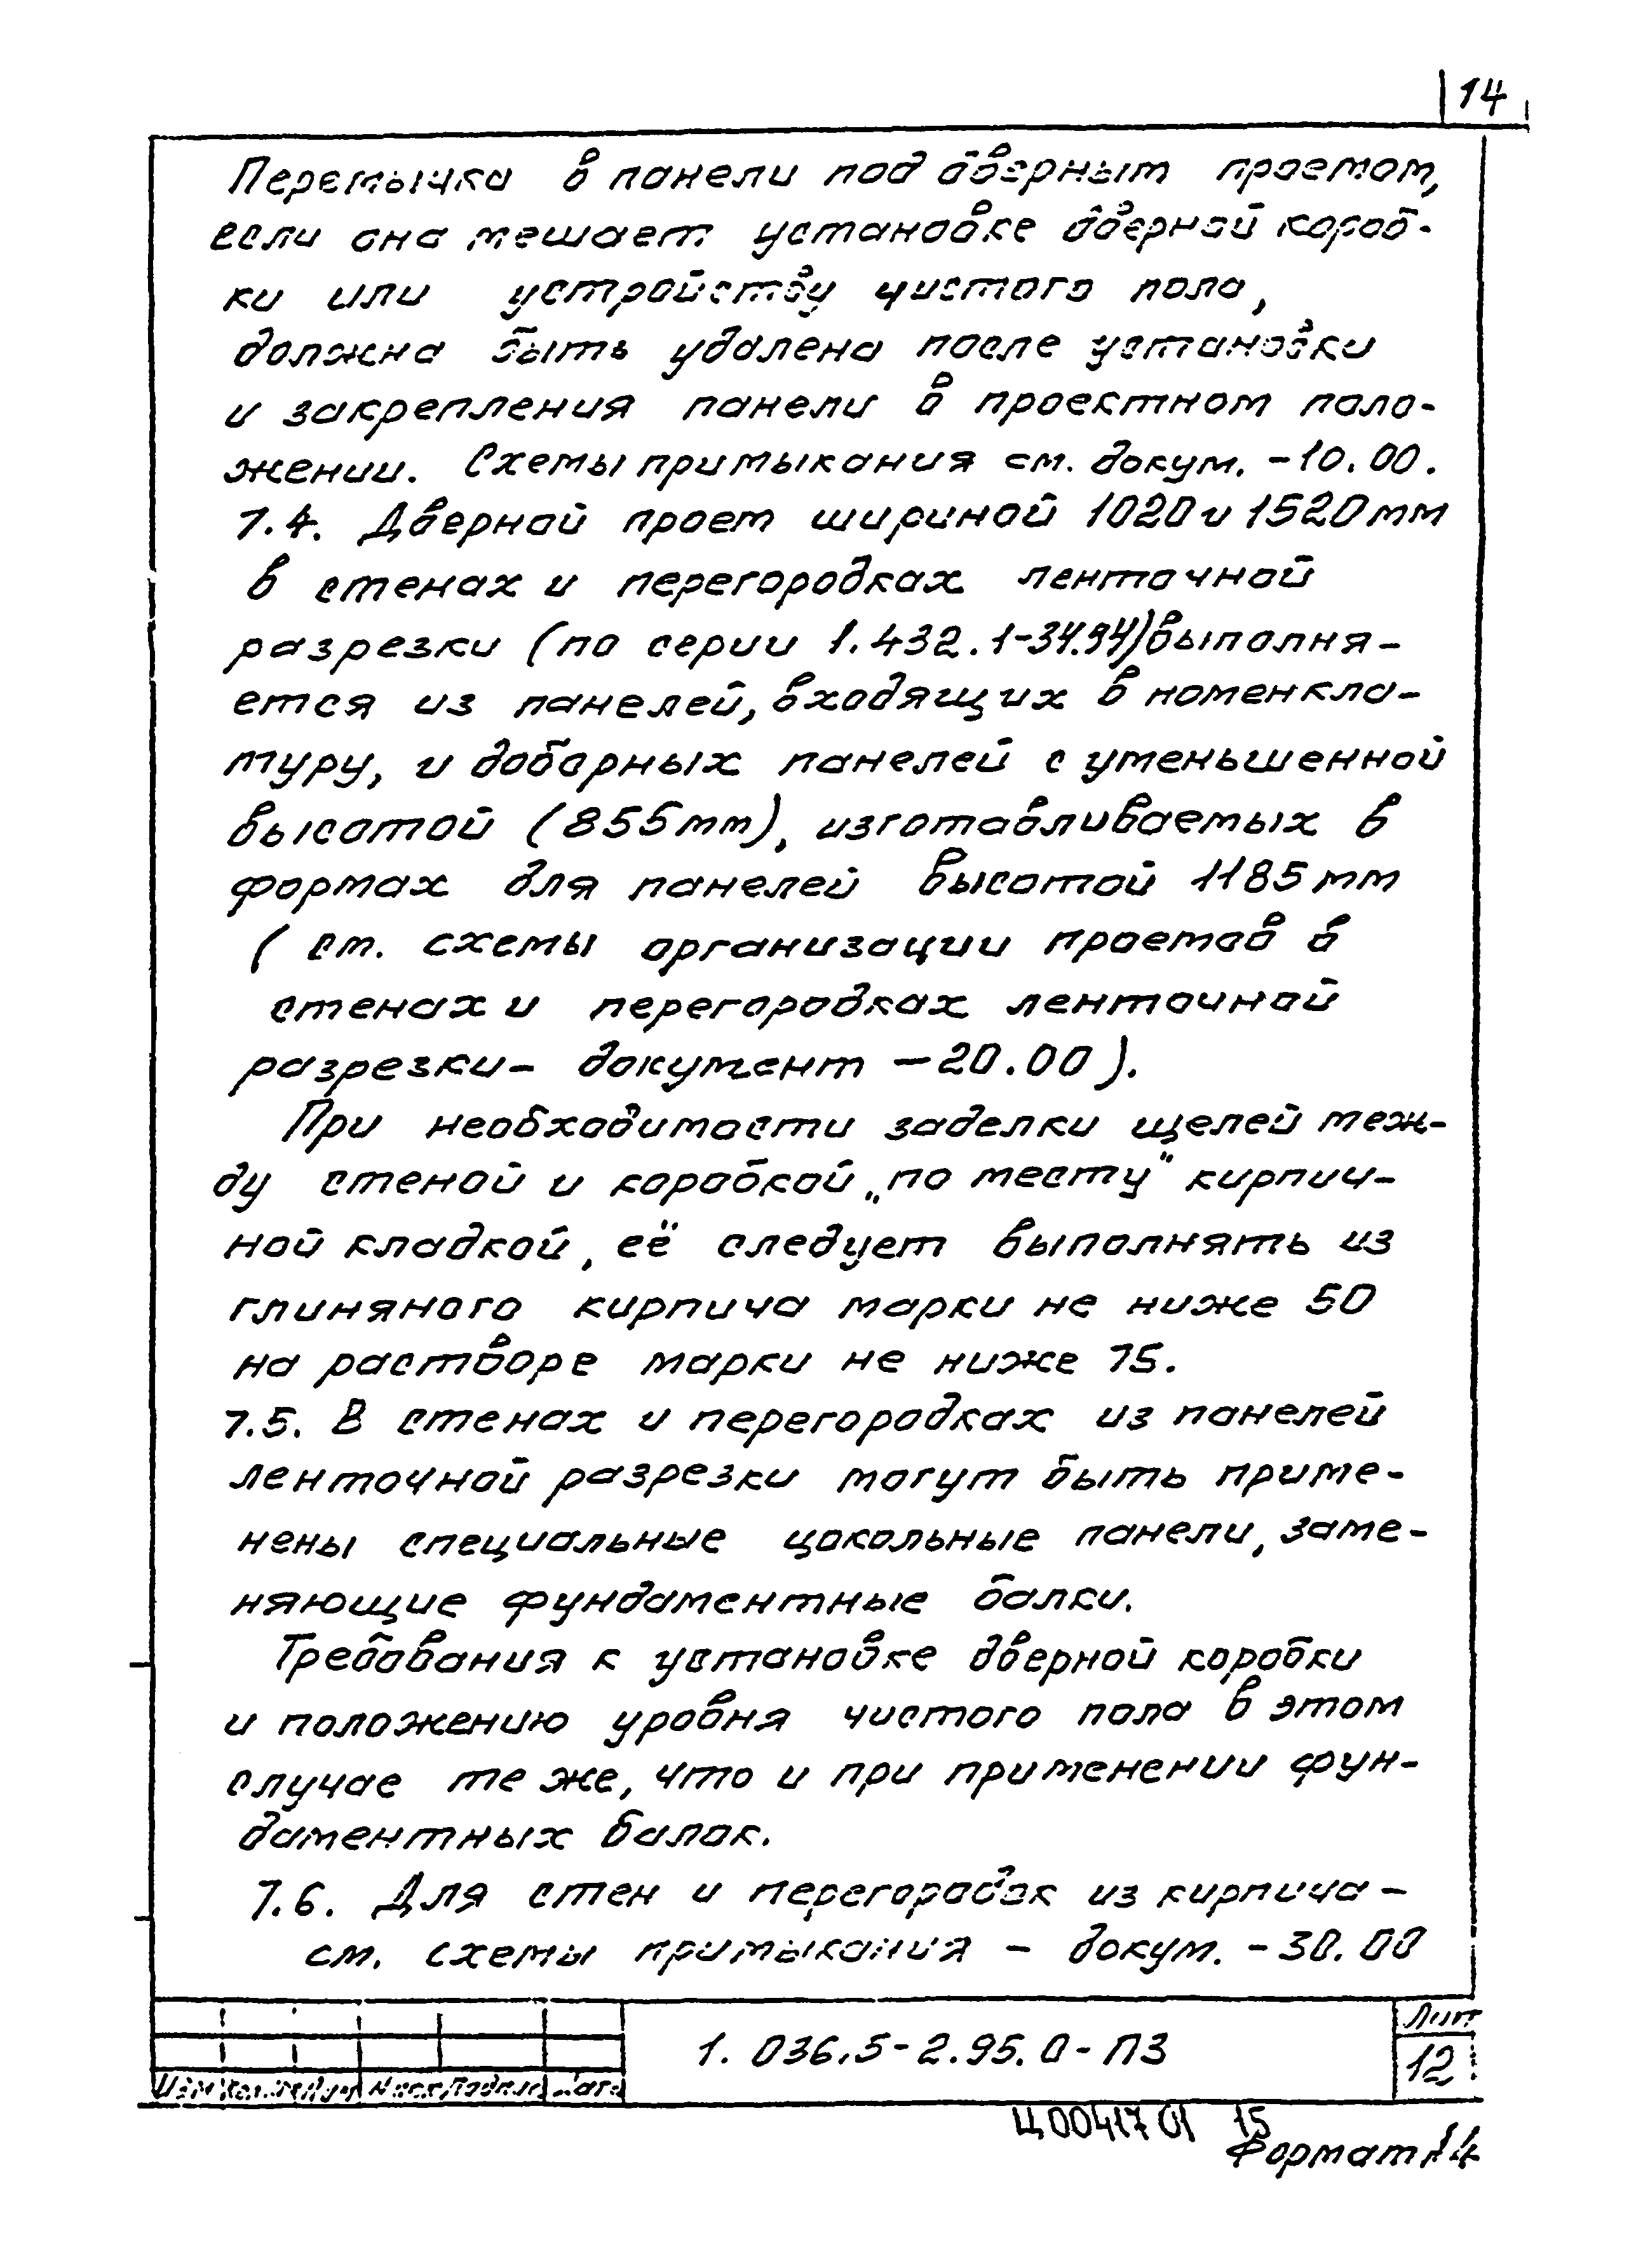 14
Перемычка в панели под дверным проемом,
если она мешает установке дверной короб-
ки или устройству чистого пола,
должна быть удалена после установки
и закрепления панели в проектном поло-
жении. Схемы примыкания см. докум. -10.00.
7.4. Дверной проем шириной 1020 и 1520 мм
в стенах и перегородках ленточной
разрезки (по серии 1.432.1-34.94) выполня-
ется из панелей, входящих в номенкла-
туру, и доборных панелей с уменьшенной
высотой (855 мм), изготавливаемых в
формах для панелей высотой 1185 мм
( см. схемы организации проемов в
стенах и перегородках ленточной
разрезки- документ -20.00).
При необходимости заделки щелей меж-
ду стеной и коробкой „по месту" кирпич-
ной кладкой, её следует выполнять из
глиняного кирпича марки не ниже 50
на растворе марки не ниже 75.
7.5. В стенах и перегородках из панелей
ленточной разрезки могут быть приме-
нены специальные цокольные панели, заме-
няющие фундаментные балки.
Требования к установке дверной коробки
и положению уровня чистого пола в этом
случае те же, что и при применении фун-
даментных балок.
7.6. Для стен и перегородок из кирпича -
см. схемы примыкания - докум. -30.00
1.036.5-2.95.0-ПЗ
Лист
12
Ц00417 01 15
Формат А4